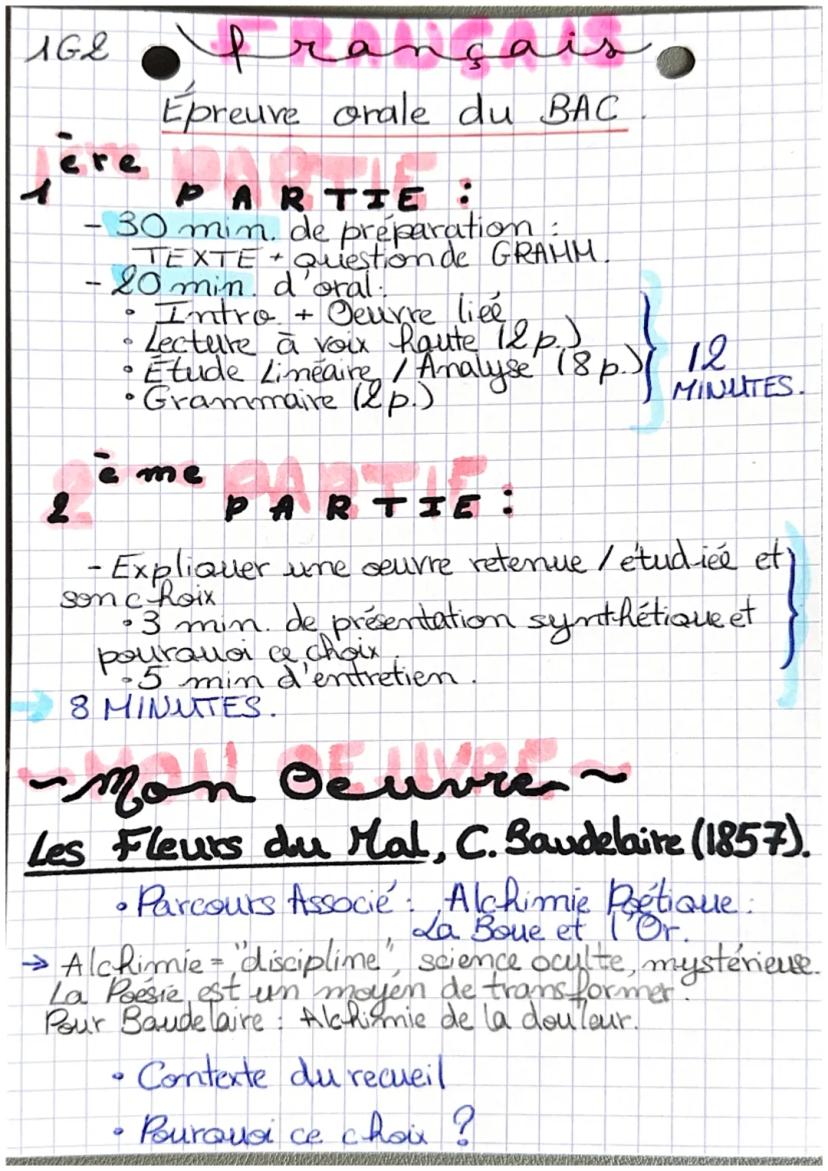 1G2 Français
FRANÇAIS
Épreuve orale du BAC.
1ère PARTIE :
1ère PARTIE
- 30 min. de préparation :
TEXTE + question de GRAMM.
- 20 min. d'oral :
• Intro + Oeuvre lieé
• Lecture à voix haute (2 p.)
• Étude Linéaire / Analyse (8 p.)
• Grammaire (2 p.)
12
MINUTES.
2ème PARTIE :
2ème PARTIE :
- Expliquer une oeuvre retenue / étudieé et
son choix
• 3 min. de présentation synthétique et
pourquoi ce choix.
• 5 min d'entretien.
→ 8 MINUTES.
~ Mon Oeuvre ~
~ MON OEUVRE ~
Les Fleurs du Mal, C. Baudelaire (1857).
• Parcours Associé : Alchimie Poétique :
La Boue et l'Or.
→ Alchimie = "discipline", science oculte, mystérieuse.
La Poésie est un moyen de transformer.
Pour Baudelaire : Alchimie de la douleur.
• Contexte du recueil
• Pourquoi ce choix ?